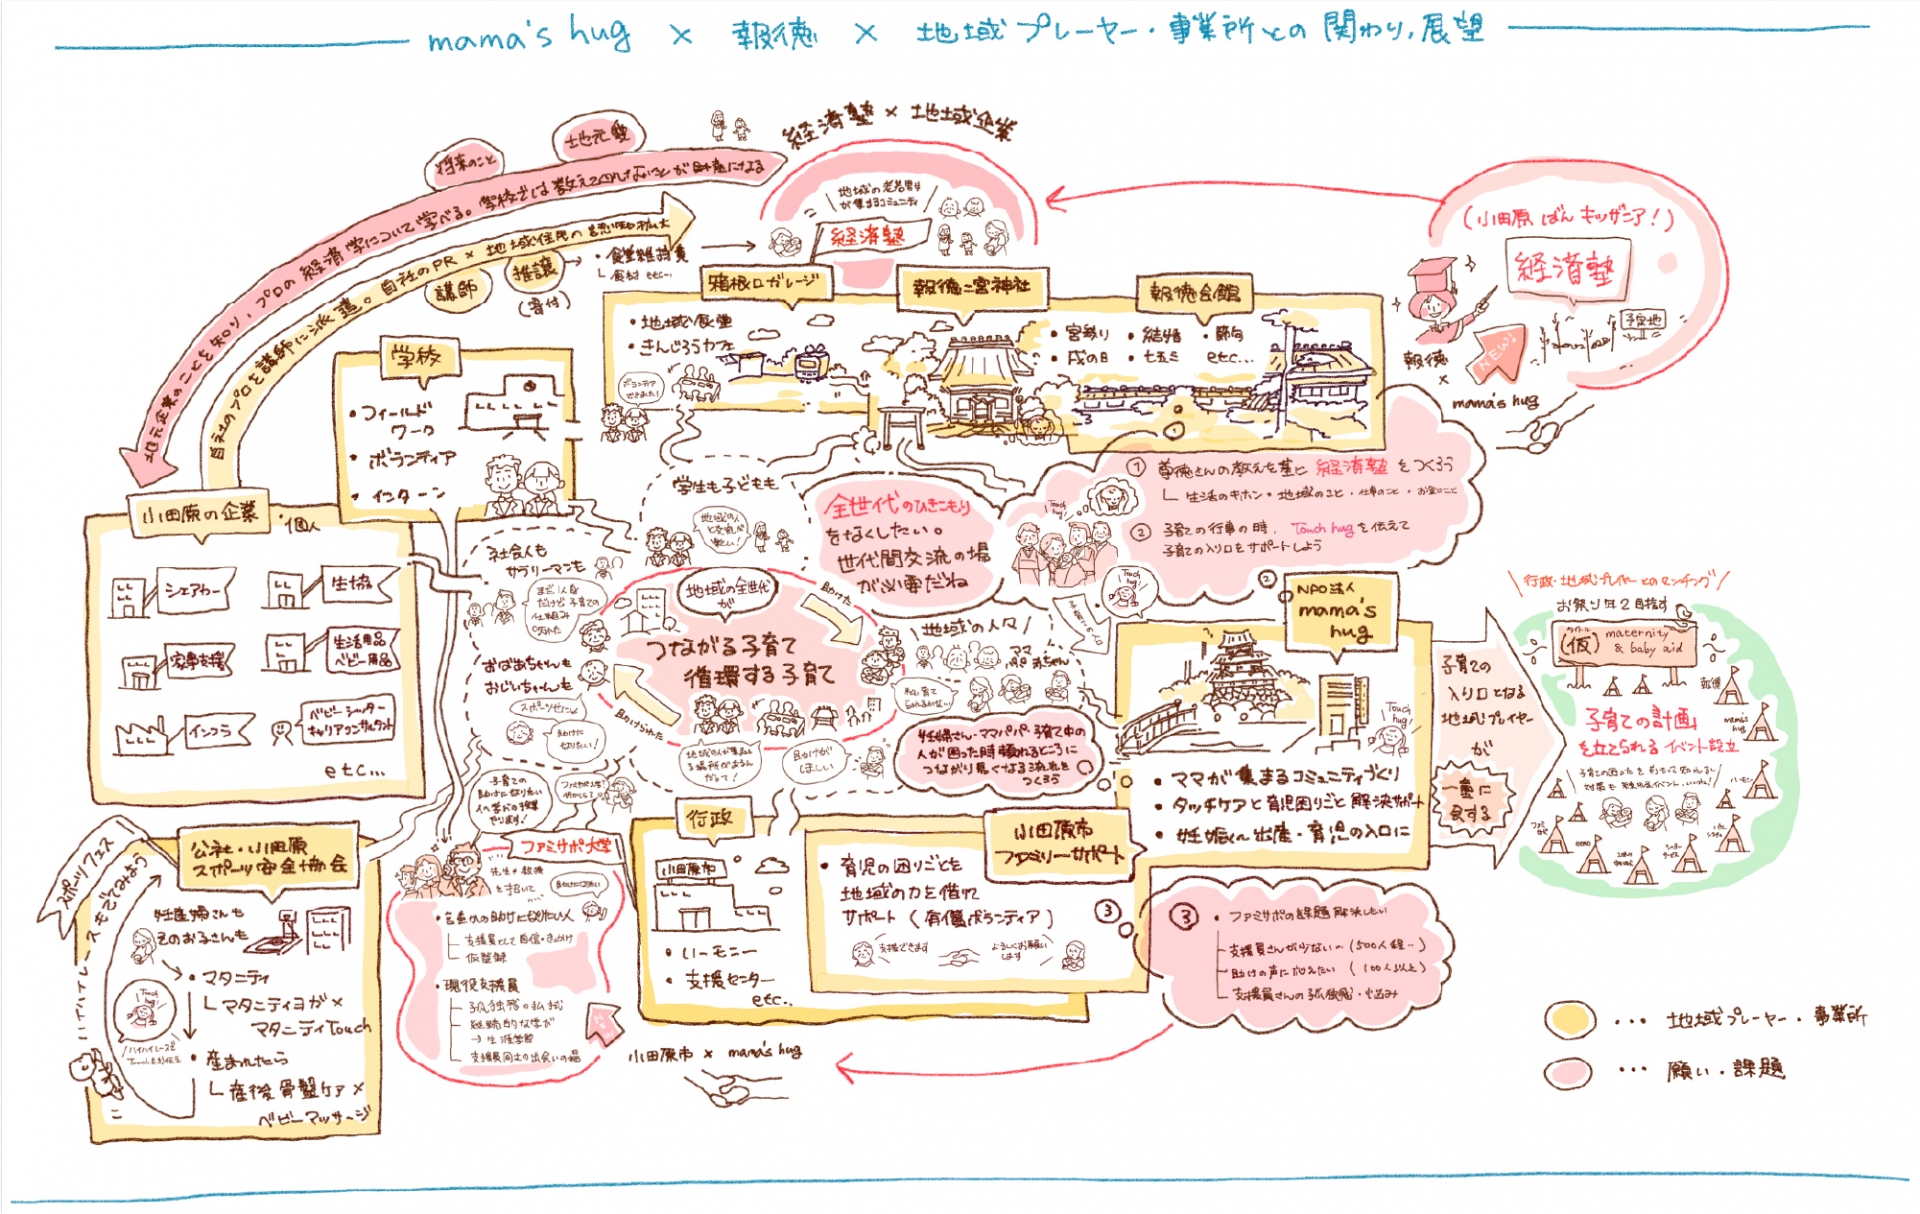 mama's hug × 報徳 × 地域プレーヤー・事業所との関わり,展望
経済塾×地域企業
地元愛
将来のこと
地元企業のことを知り、プロの経済学について学べる。学校では教えてくれないことが財産になる
自社のプロを講師に派遣。自社のPR×地域住民の認知拡大
講師
推譲
(寄付)
・食堂維持費
└食材 etc...
地域の老若男女
が集まるコミュニティ
経済塾
(小田原ばんキッザニア!)
経済塾
予定地
NEW!
報徳
×
mama's hug
箱根口ガレージ
・地域食堂
・きんじろうカフェ
ボランティア
報徳二宮神社
報徳会館
・宮参り ・結婚 ・節句
・戌の日 ・七五三 etc...
学校
・フィールド
ワーク
・ボランティア
・インターン
小田原の企業・個人
シェアカー
生協
家事支援
生活用品
ベビー用品
インフラ
ベビーシッター
キャリアコンサルタント
etc...
学生も子どもも
地域の人
と交流が
楽しい!
社会人も
サラリーマンも
おばあちゃんも
おじいちゃんも
助けに
なりたい!
地域の全世代
が
つながる子育て
循環する子育て
助けた
助けられた
全世代のひきこもり
をなくしたい。
世代間交流の場
が必要だね
① 尊徳さんの教えを基に経済塾をつくろう
└ 生活のキホン・地域のこと・仕事のこと・お金のこと
② 子育ての行事の時、Touch hugを伝えて
子育ての入り口をサポートしよう
Touch
hug!
地域の人々
ママ
パパ 赤ちゃん
助けが
ほしい
妊婦さん・ママパパ・子育て中の
人が困った時頼れるところに
つながり易くなる流れを
つくろう
②
NPO法人
mama's
hug
Touch
hug!
・ママが集まるコミュニティづくり
・タッチケアと育児困りごと解決サポート
・妊娠〜出産・育児の入口に
子育ての
入り口となる
地域プレイヤー
が
一堂に
会する
行政・地域プレイヤーとのマッチング
お祭り年2目指す
(仮) maternity
& baby aid
報徳
mama's
hug
「子育ての計画」
を立てられるイベント設立
公社・小田原
スポーツ安全協会
スポーツフェス
妊産婦さんも
そのお子さんも
・マタニティ
└マタニティヨガ×
マタニティTouch
・産まれたら
└産後骨盤ケア×
ベビーマッサージ
Touch
hug!
子育ての
助けになりたい
人へ学びの授業
やります!
ファミサポ大学
・子育ての助けになりたい人
├支援員として自信・きっかけ
└仮登録
・現役支援員
├孤独感の払拭
├継続的な学び
→生涯学習
└支援員同士の出会いの場
NEW
行政
小田原市
・ハーモニー
・支援センター
etc...
小田原市
ファミリーサポート
・育児の困りごとを
地域の力を借りて
サポート(有償ボランティア)
支援できます
よろしくお願い
します
③
③ ・ファミサポの課題解決したい
├支援員さんが少ない..(500人程..)
├助けの声に応えたい (100人以上)
└支援員さんの孤独感・悩み
小田原市 × mama's hug
… 地域プレーヤー・事業所
… 願い・課題